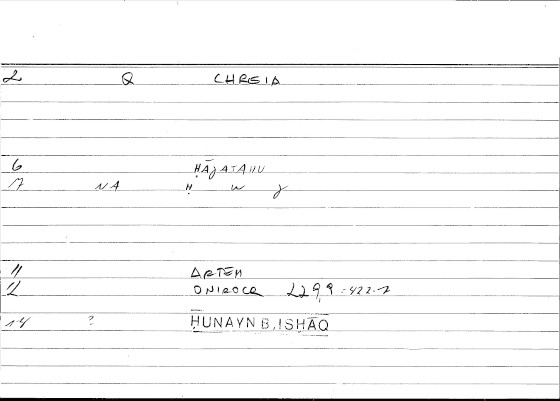 2 Q CHREIA
6 ḤĀJATAHU
7 NA Ḥ w j
11 ARTEM
12 ONIROCR 229,9 : 422.7
14 ? ḤUNAYN B. ISḤĀQ